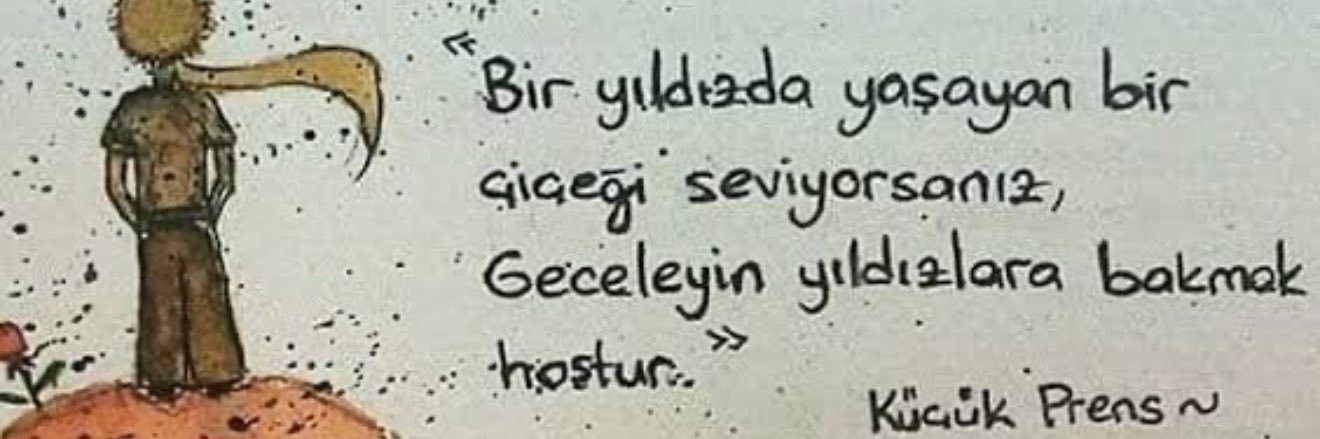 "Bir yıldızda yaşayan bir
çiçeği seviyorsanız,
Geceleyin yıldızlara bakmak
hoştur."
Küçük Prens ~